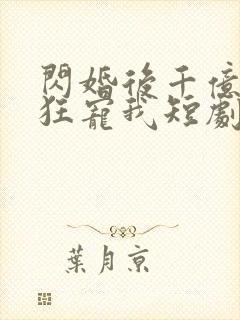 閃婚後千億
狂寵我短劇
葉月京